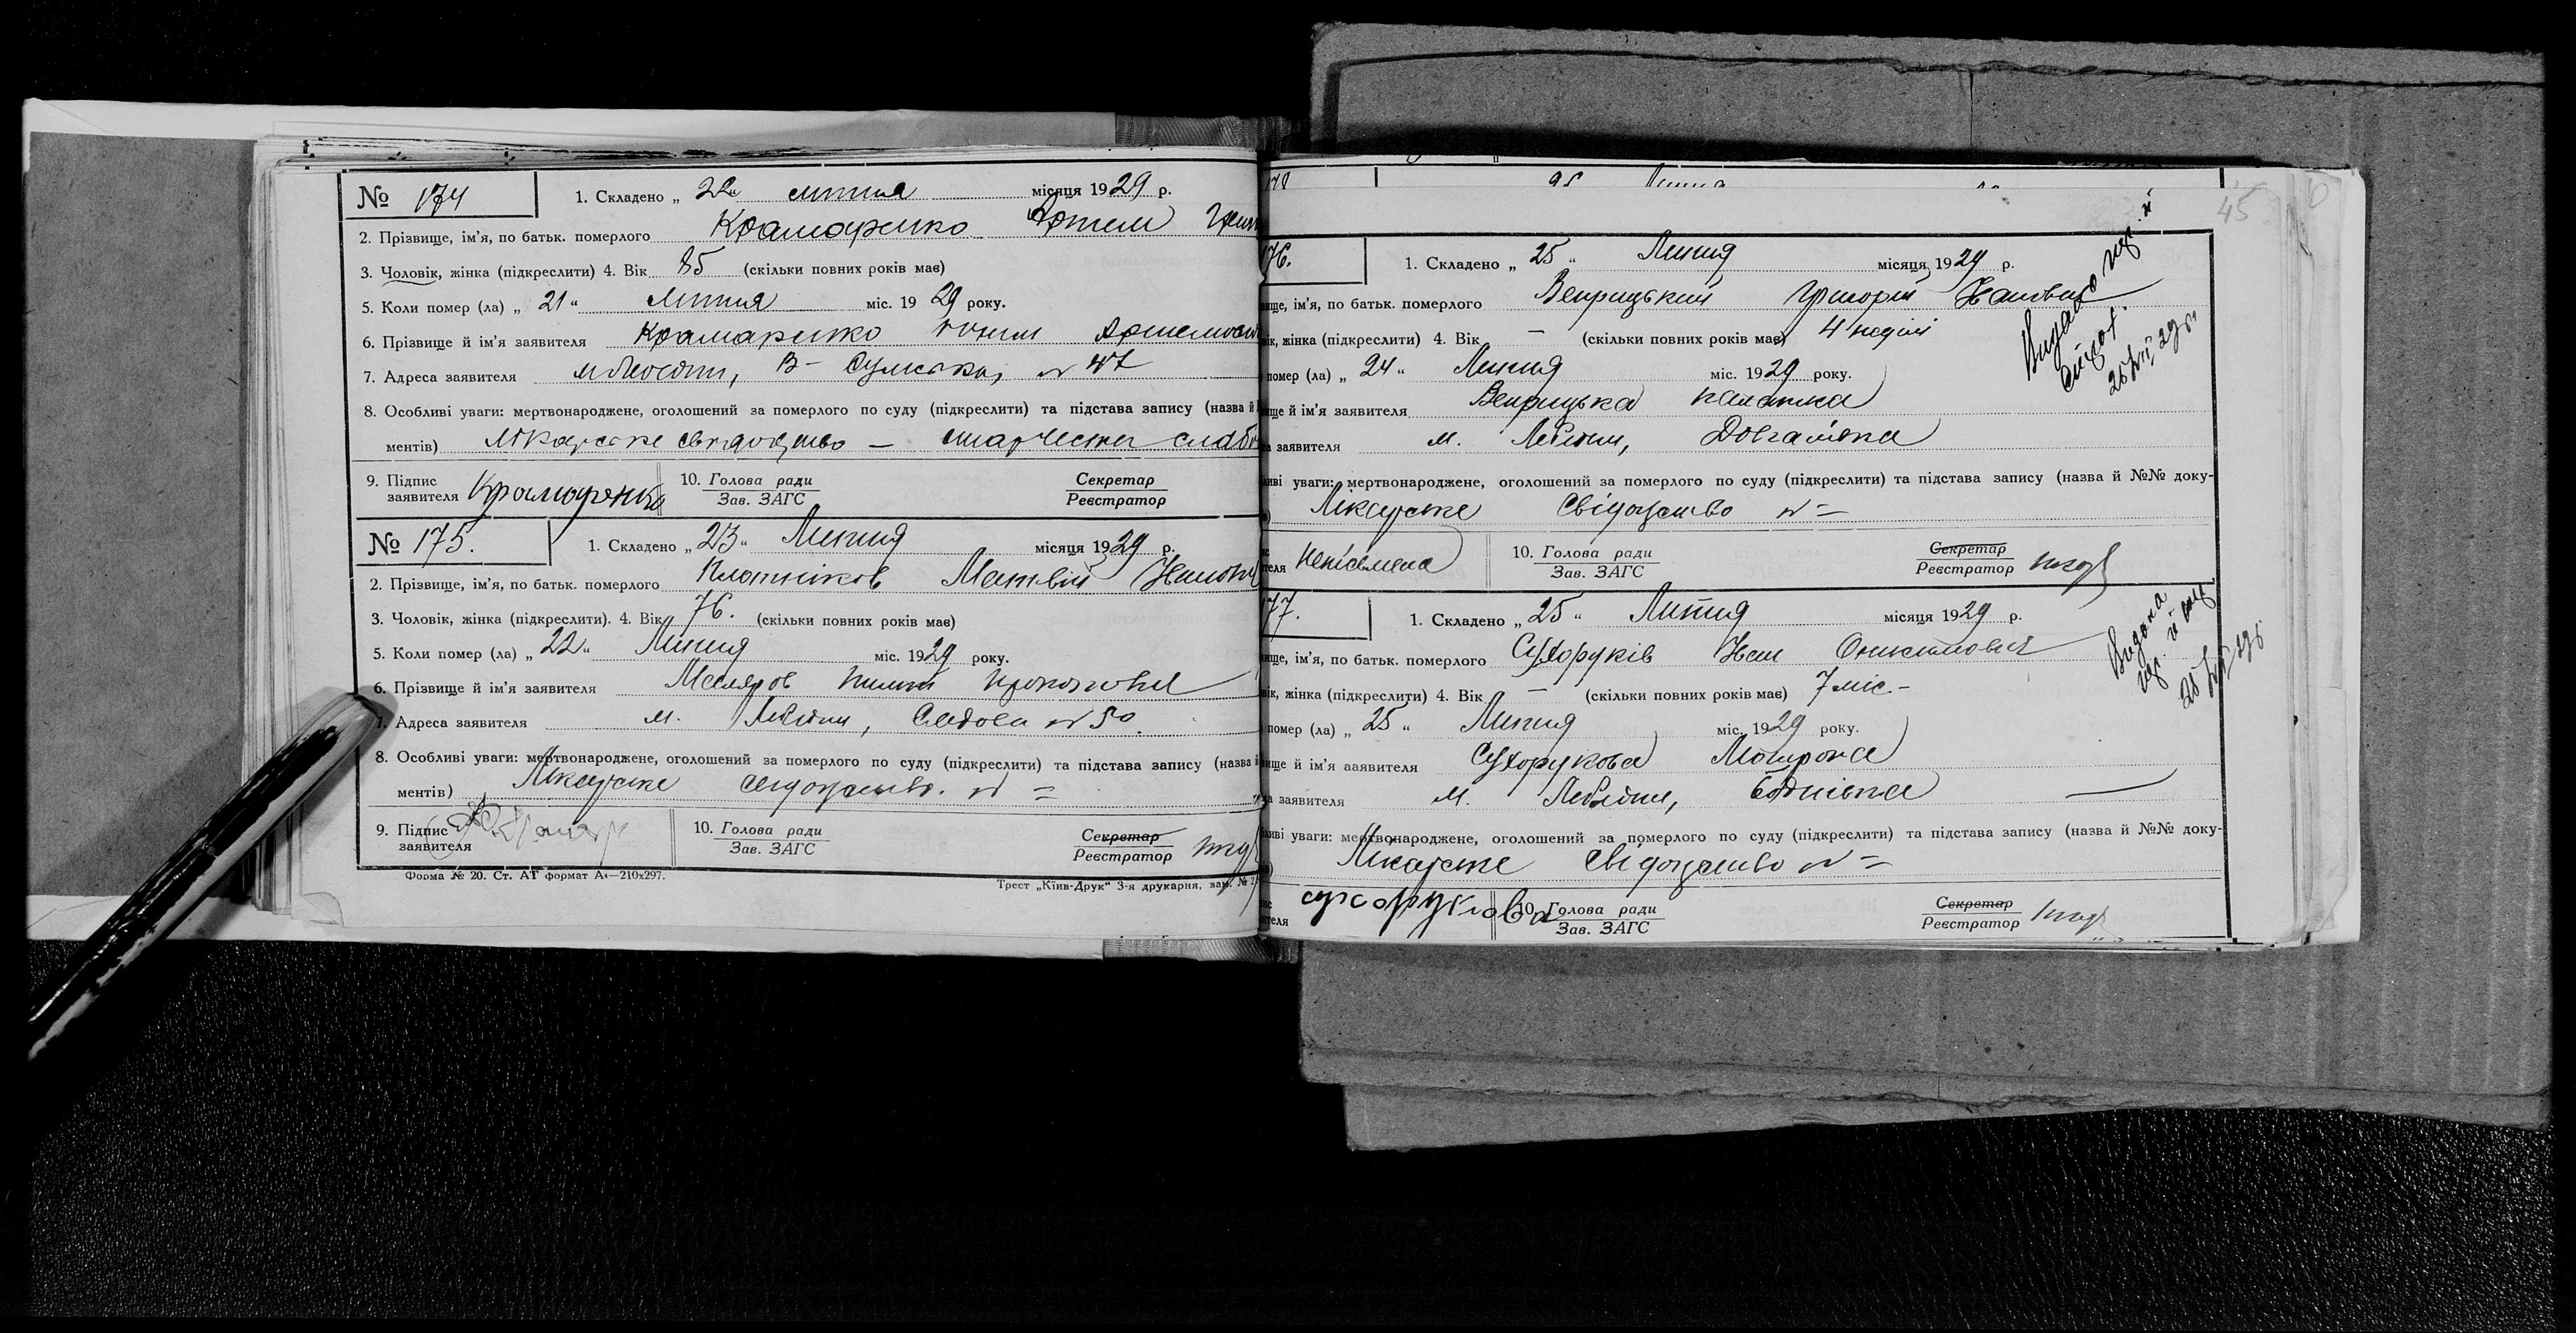 № 174 1. Складено „ 22 “ липня місяця 1929 р.
2. Прізвище, ім’я, по батьк. померлого Крамаренко Артем
3. Чоловік, жінка (підкреслити) 4. Вік 85 (скільки повних років має)
5. Коли помер (ла) „ 21 “ липня міс. 1929 року.
6. Прізвище й ім’я заявителя Крамаренко
7. Адреса заявителя м Лебедин, В- Сумська, № 47
8. Особливі уваги: мертвонароджене, оголошений за померлого по суду (підкреслити) та підстава запису (назва й
ментів) Лікарське свидоцтво —
9. Підпис заявителя Крамаренко 10. Голова ради Зав. ЗАГС Секретар Реєстратор
№ 175. 1. Складено „ 23 “ Липня місяця 1929 р.
2. Прізвище, ім’я, по батьк. померлого Плотніков Матвій
3. Чоловік, жінка (підкреслити). 4. Вік 76. (скільки повних років має)
5. Коли помер (ла) „ 22 “ Липня міс. 1929 року.
6. Прізвище й ім’я заявителя Маляров
7. Адреса заявителя м. Лебедин, № 50
8. Особливі уваги: мертвонароджене, оголошений за померлого по суду (підкреслити) та підстава запису (назва й
ментів) Лікарське свідоцтво. № =
9. Підпис заявителя 10. Голова ради Зав. ЗАГС Секретар Реєстратор
Форма № 20. Ст. АТ формат А4—210х297. Трест „Київ-Друк“ 3-я друкарня, зам. №
178
45
76. 1. Складено „ 25 “ Липня місяця 1929 р.
ище, ім’я, по батьк. померлого Веприцький Григорій Іванович
вік, жінка (підкреслити) 4. Вік — (скільки повних років має) 4 неділі
помер (ла) „ 24 “ Липня міс. 1929 року.
ище й ім’я заявителя Веприцька
а заявителя м. Лебедин, Довгалівка
иві уваги: мертвонароджене, оголошений за померлого по суду (підкреслити) та підстава запису (назва й №№ доку-
Лікарське Свідоцтво № =
теля Неписьмена 10. Голова ради Зав. ЗАГС Секретар Реєстратор
77. 1. Складено „ 25 “ Липня місяця 1929 р.
ище, ім’я, по батьк. померлого Сухоруків Іван
вік, жінка (підкреслити) 4. Вік — (скільки повних років має) 7 міс. –
помер (ла) „ 25 “ Липня міс. 1929 року.
ище й ім’я заявителя Сухорукова Мотрона
а заявителя м. Лебедин,
ливі уваги: мертвонароджене, оголошений за померлого по суду (підкреслити) та підстава запису (назва й №№ доку-
Лікарське Свідоцтво № =
теля сухорукова 10. Голова ради Зав. ЗАГС Секретар Реєстратор